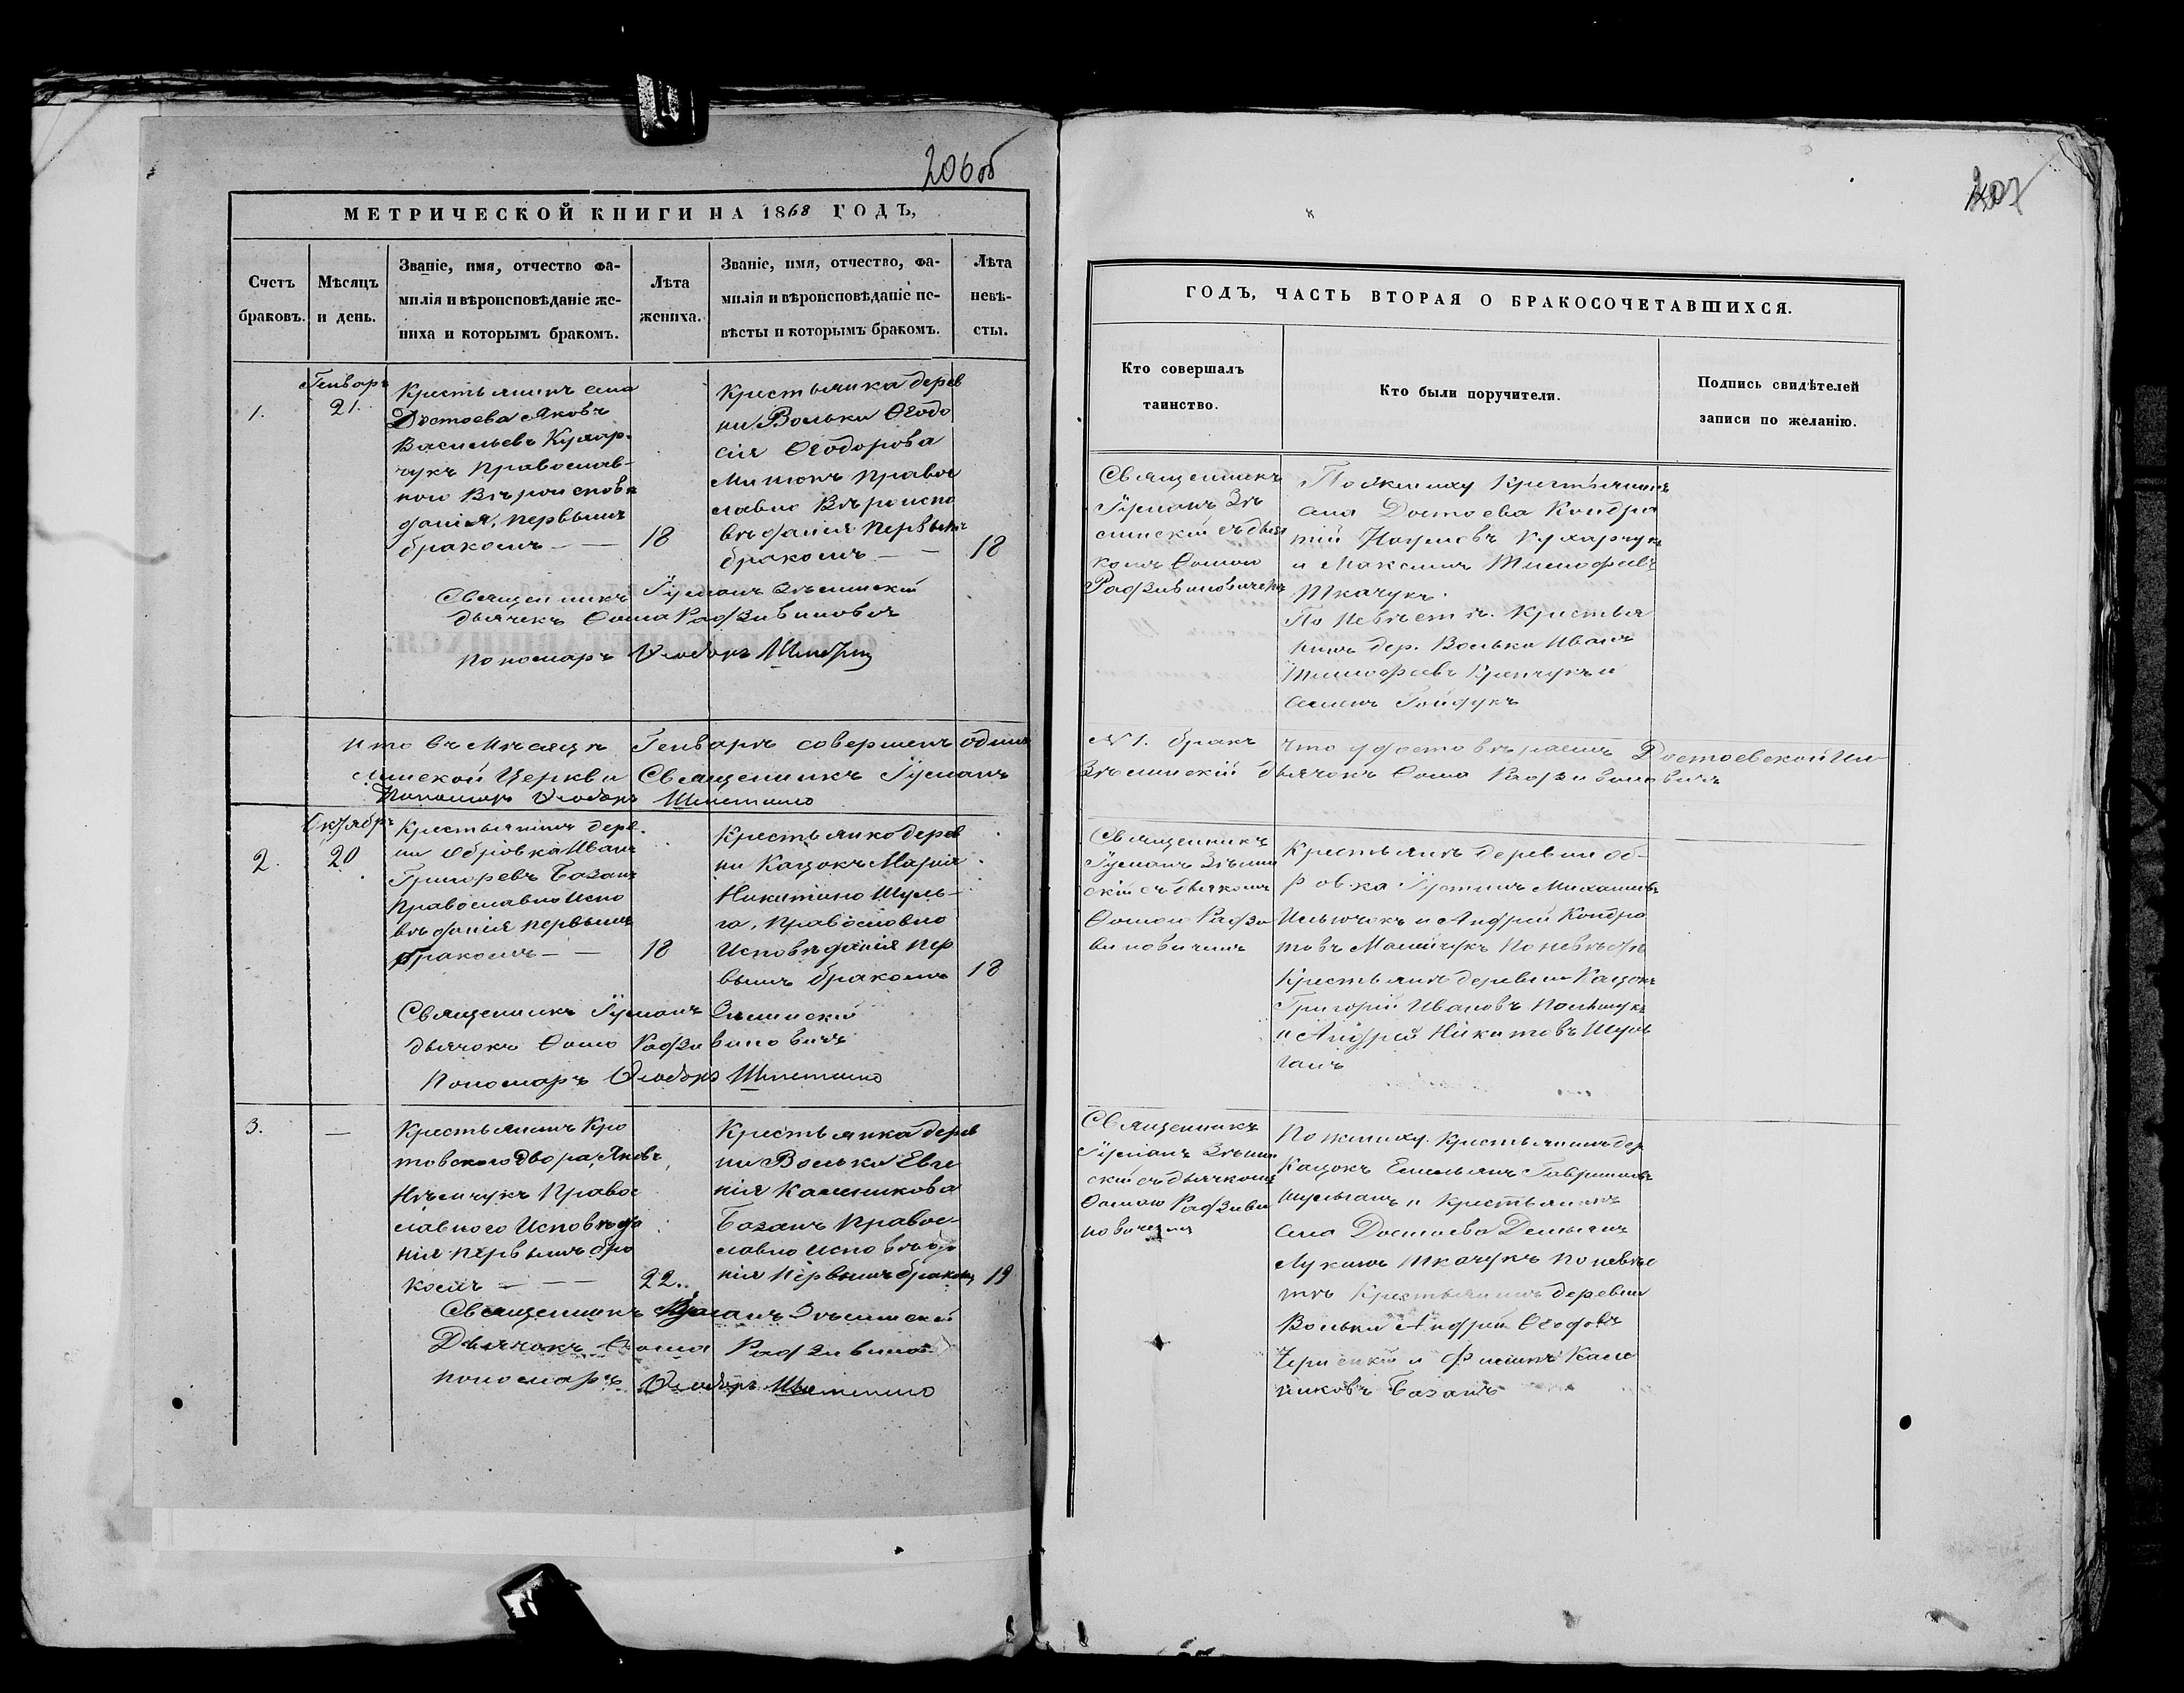 206об
МЕТРИЧЕСКОЙ КНИГИ НА 1868 ГОДЪ,
Счетъ браковъ.
Мѣсяцъ и день.
Званіе, имя, отчество фа-
милія и вѣроисповѣданіе же-
ниха и которымъ бракомъ.
Лѣта жениха.
Званіе, имя, отчество, фа-
милія и вѣроисповѣданіе не-
вѣсты и которымъ бракомъ.
Лѣта невѣ-
сты.
1.
Генварь
21.
Крестьянинъ села
Достоева Яковъ
Васильевъ Кухар-
чукъ Православ-
ного Вѣроиспове
данія, первымъ
бракомъ — —
18
Крестьянка дерев
ни Вольки Ѳеодо
сія Ѳеодорова
православно Вѣроиспо
вѣданія первымъ
бракомъ — —
18
Священникъ Іуліанъ Зѣлинскій
дьячекъ Ѳома Радзивиновичъ
пономарь
Итого въ Мѣсяцѣ Генварѣ совершенъ одинъ
Церкви Священникъ Іуліанъ
Пономарь
Октябрь
2.
20
Крестьянинъ дерев
ни Обровка Иванъ
Григорьевъ Базанъ
Православно Испо
вѣданія первымъ
бракомъ — —
18
Крестьянка дерев
ни Кацокъ Марія
Никитина Шуль-
га, православно
Исповѣданія пер
вымъ бракомъ
18
Священникъ Іуліанъ Зѣлинскій
дьячокъ Ѳома Радзивиновичъ
Пономарь
3.
—
Крестьянинъ Кро
товского двора, Яковъ
Нѣмчукъ Право
славного Исповѣда
нія первымъ бра
комъ — — —
22..
Крестьянка дерев
ни Вольки Евге
нія Калиникова
Базанъ Правос-
лавно исповѣда
нія первымъ бракомъ
19
Священникъ Іуліанъ Зѣлинскій
Дьячокъ Ѳома Радзивинов
пономарь
207
ГОДЪ, ЧАСТЬ ВТОРАЯ О БРАКОСОЧЕТАВШИХСЯ.
Кто совершалъ
таинство.
Кто были поручители.
Подпись свидѣтелей
записи по желанію.
Священникъ
Іуліанъ Зѣ
линскій съ дьяч
комъ Ѳомою
Радзивиновичемъ
По жениху Крестьянинъ
села Достоева Кондра
тій Наумовъ Кухарчукъ
и Максимъ Тимофеевъ
Ткачукъ.
По невѣстѣ. Крестья
нинъ дер. Вольки Иванъ
Тимофеевъ
Гайдукъ
№ 1. бракъ что удостовѣряемъ Достоевской
Зѣлинскій дьячокъ Ѳома Радзивиновичъ
Священникъ
Іуліанъ Зѣлин
скій съ дьячкомъ
Ѳомою Радзи
виновичемъ
Крестьянъ деревни Об-
ровка Іустинъ Михаиловъ
Ильючокъ и Андрей Кондра
товъ по невѣстѣ
Крестьянъ деревни Кацокъ
Григорій Ивановъ Полѣшукъ
и Андрей Никитовъ Шуль
ганъ
Священникъ
Іуліанъ Зѣлин
скій съ дьячкомъ
Ѳомою Радзиви
новичемъ
По жениху. Крестьянинъ дер
Кацокъ Емельянъ Гавриловъ
Шульганъ и Крестьянинъ
села Достоева Демьянъ
Лукинъ Ткачукъ по невѣс
тѣ Крестьянинъ деревни
Вольки Андрей
и Кали
никовъ Базанъ